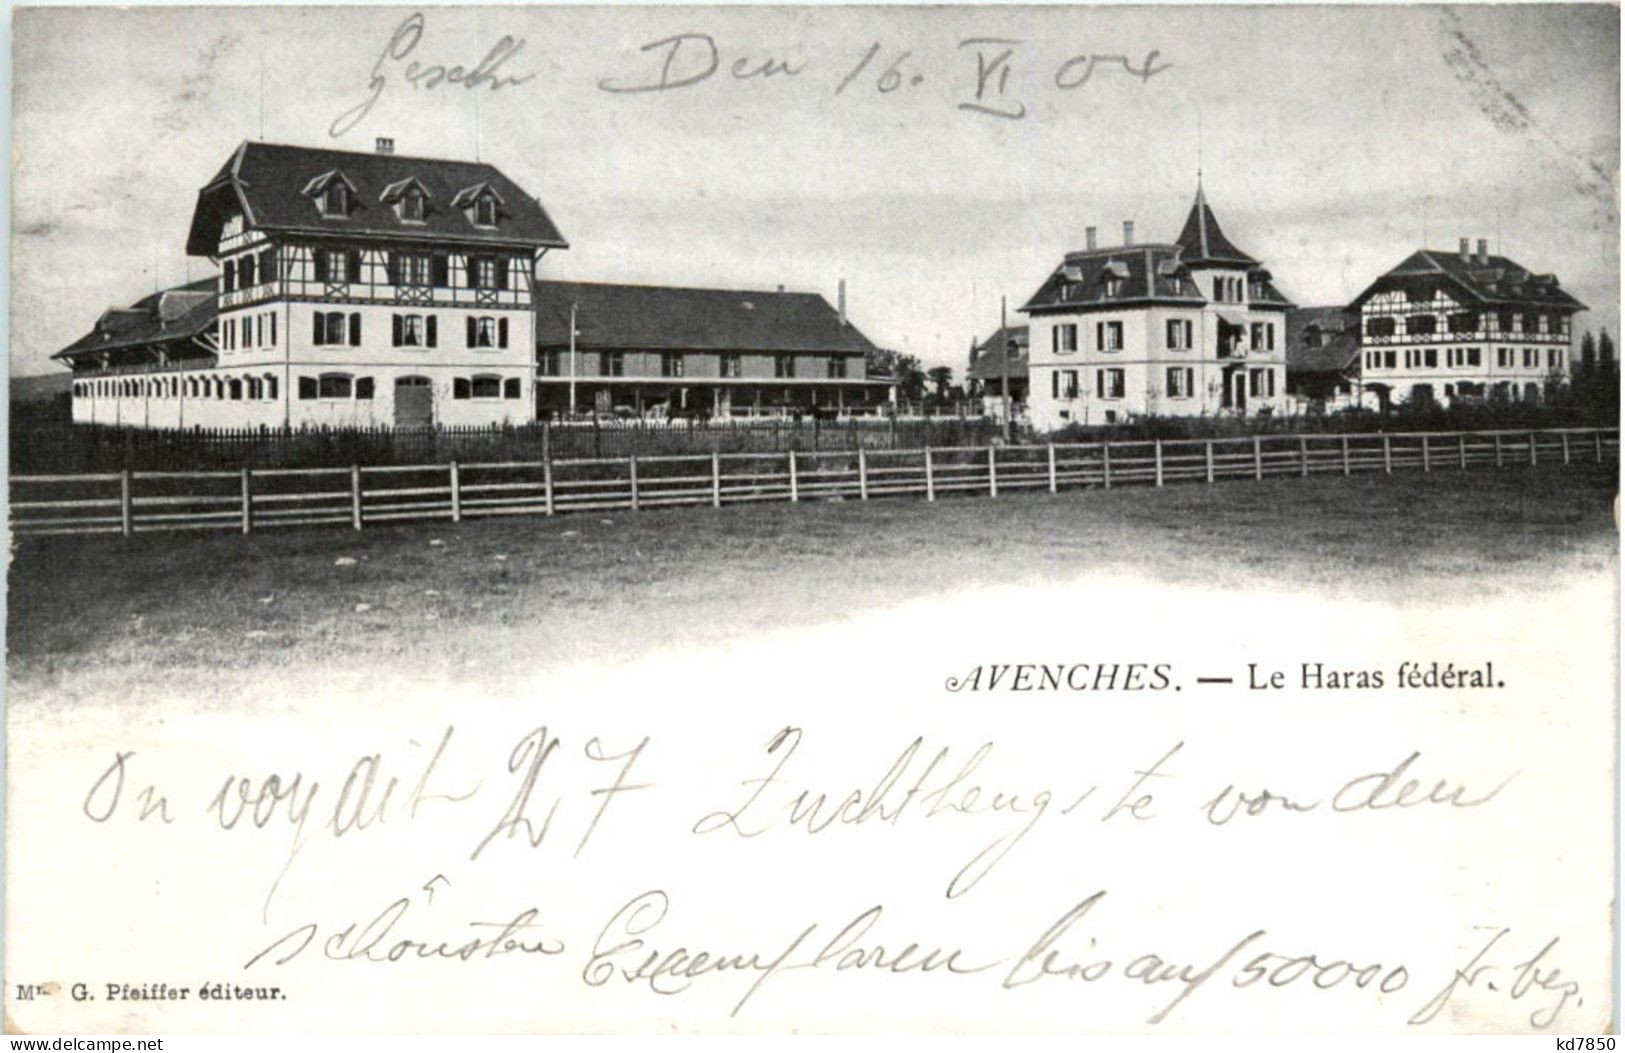 Geschr Den 16. VI 04
AVENCHES. — Le Haras fédéral.
On voy dit 27 Zuchthengste von den
schönsten Exemplaren bis auf 50000 Fr. bez.
Mr G. Pfeiffer éditeur.
www.delcampe.net
kd7850